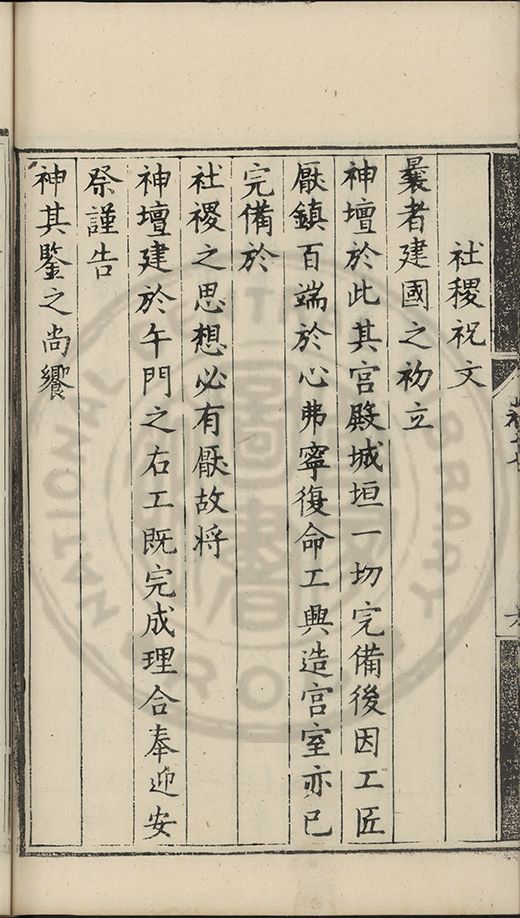 社稷祝文
曩者建國之初立
神壇於此其宮殿城垣一切完備後因工匠
厭鎮百端於心弗寧復命工興造宮室亦已
完備於
社稷之思想必有厭故將
神壇建於午門之右工既完成理合奉迎安
祭謹告
神其鑒之尚饗